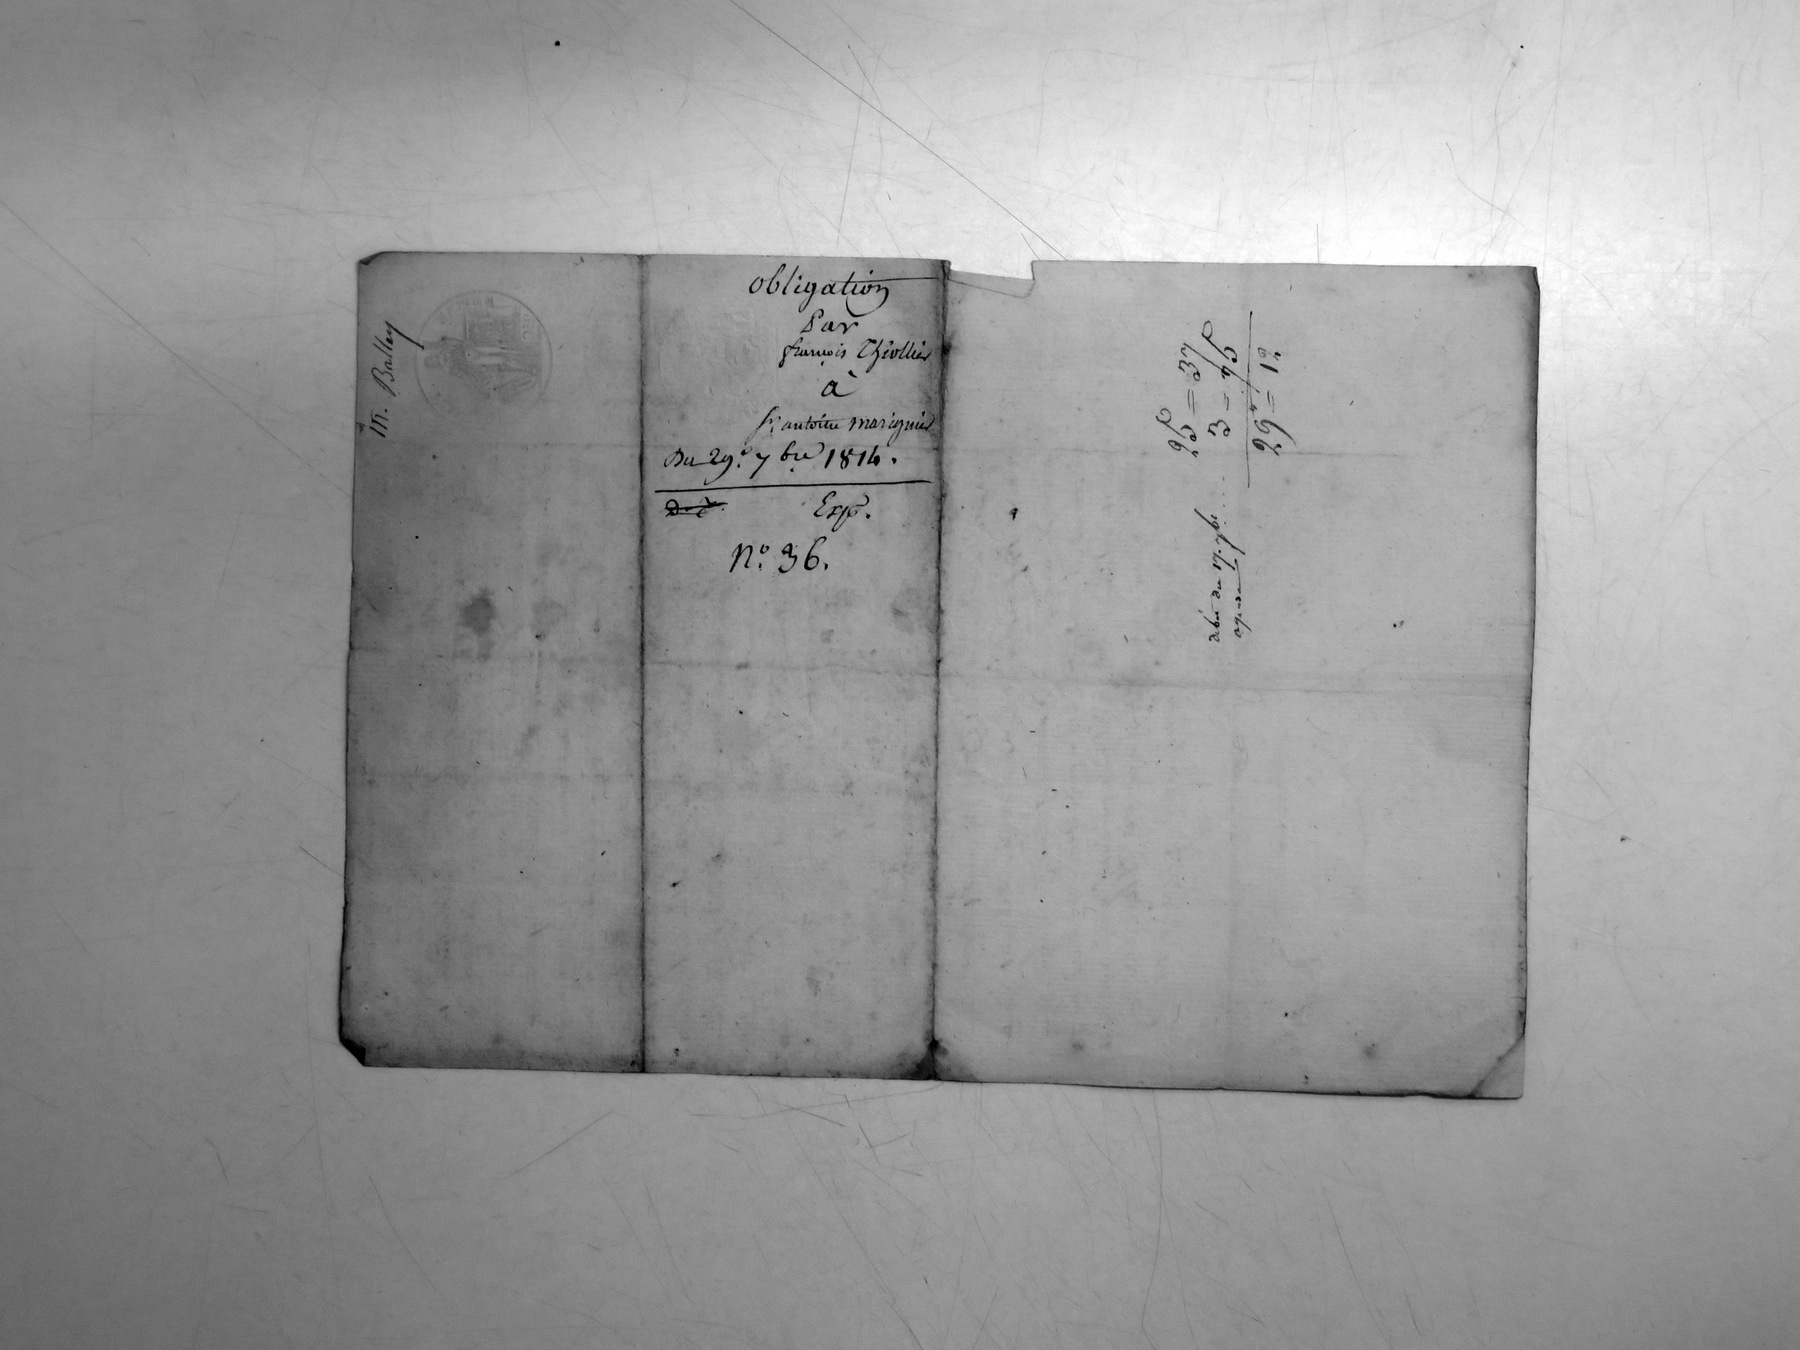 M. Balley
obligation
Par
françois Thiollier
à
Sr. antoine marignier
Du 29e. 7bre 1814.
Exp.
N.o 36.
25₶ = 37
3 = 75
29₶ = 12
du 17. 7bre